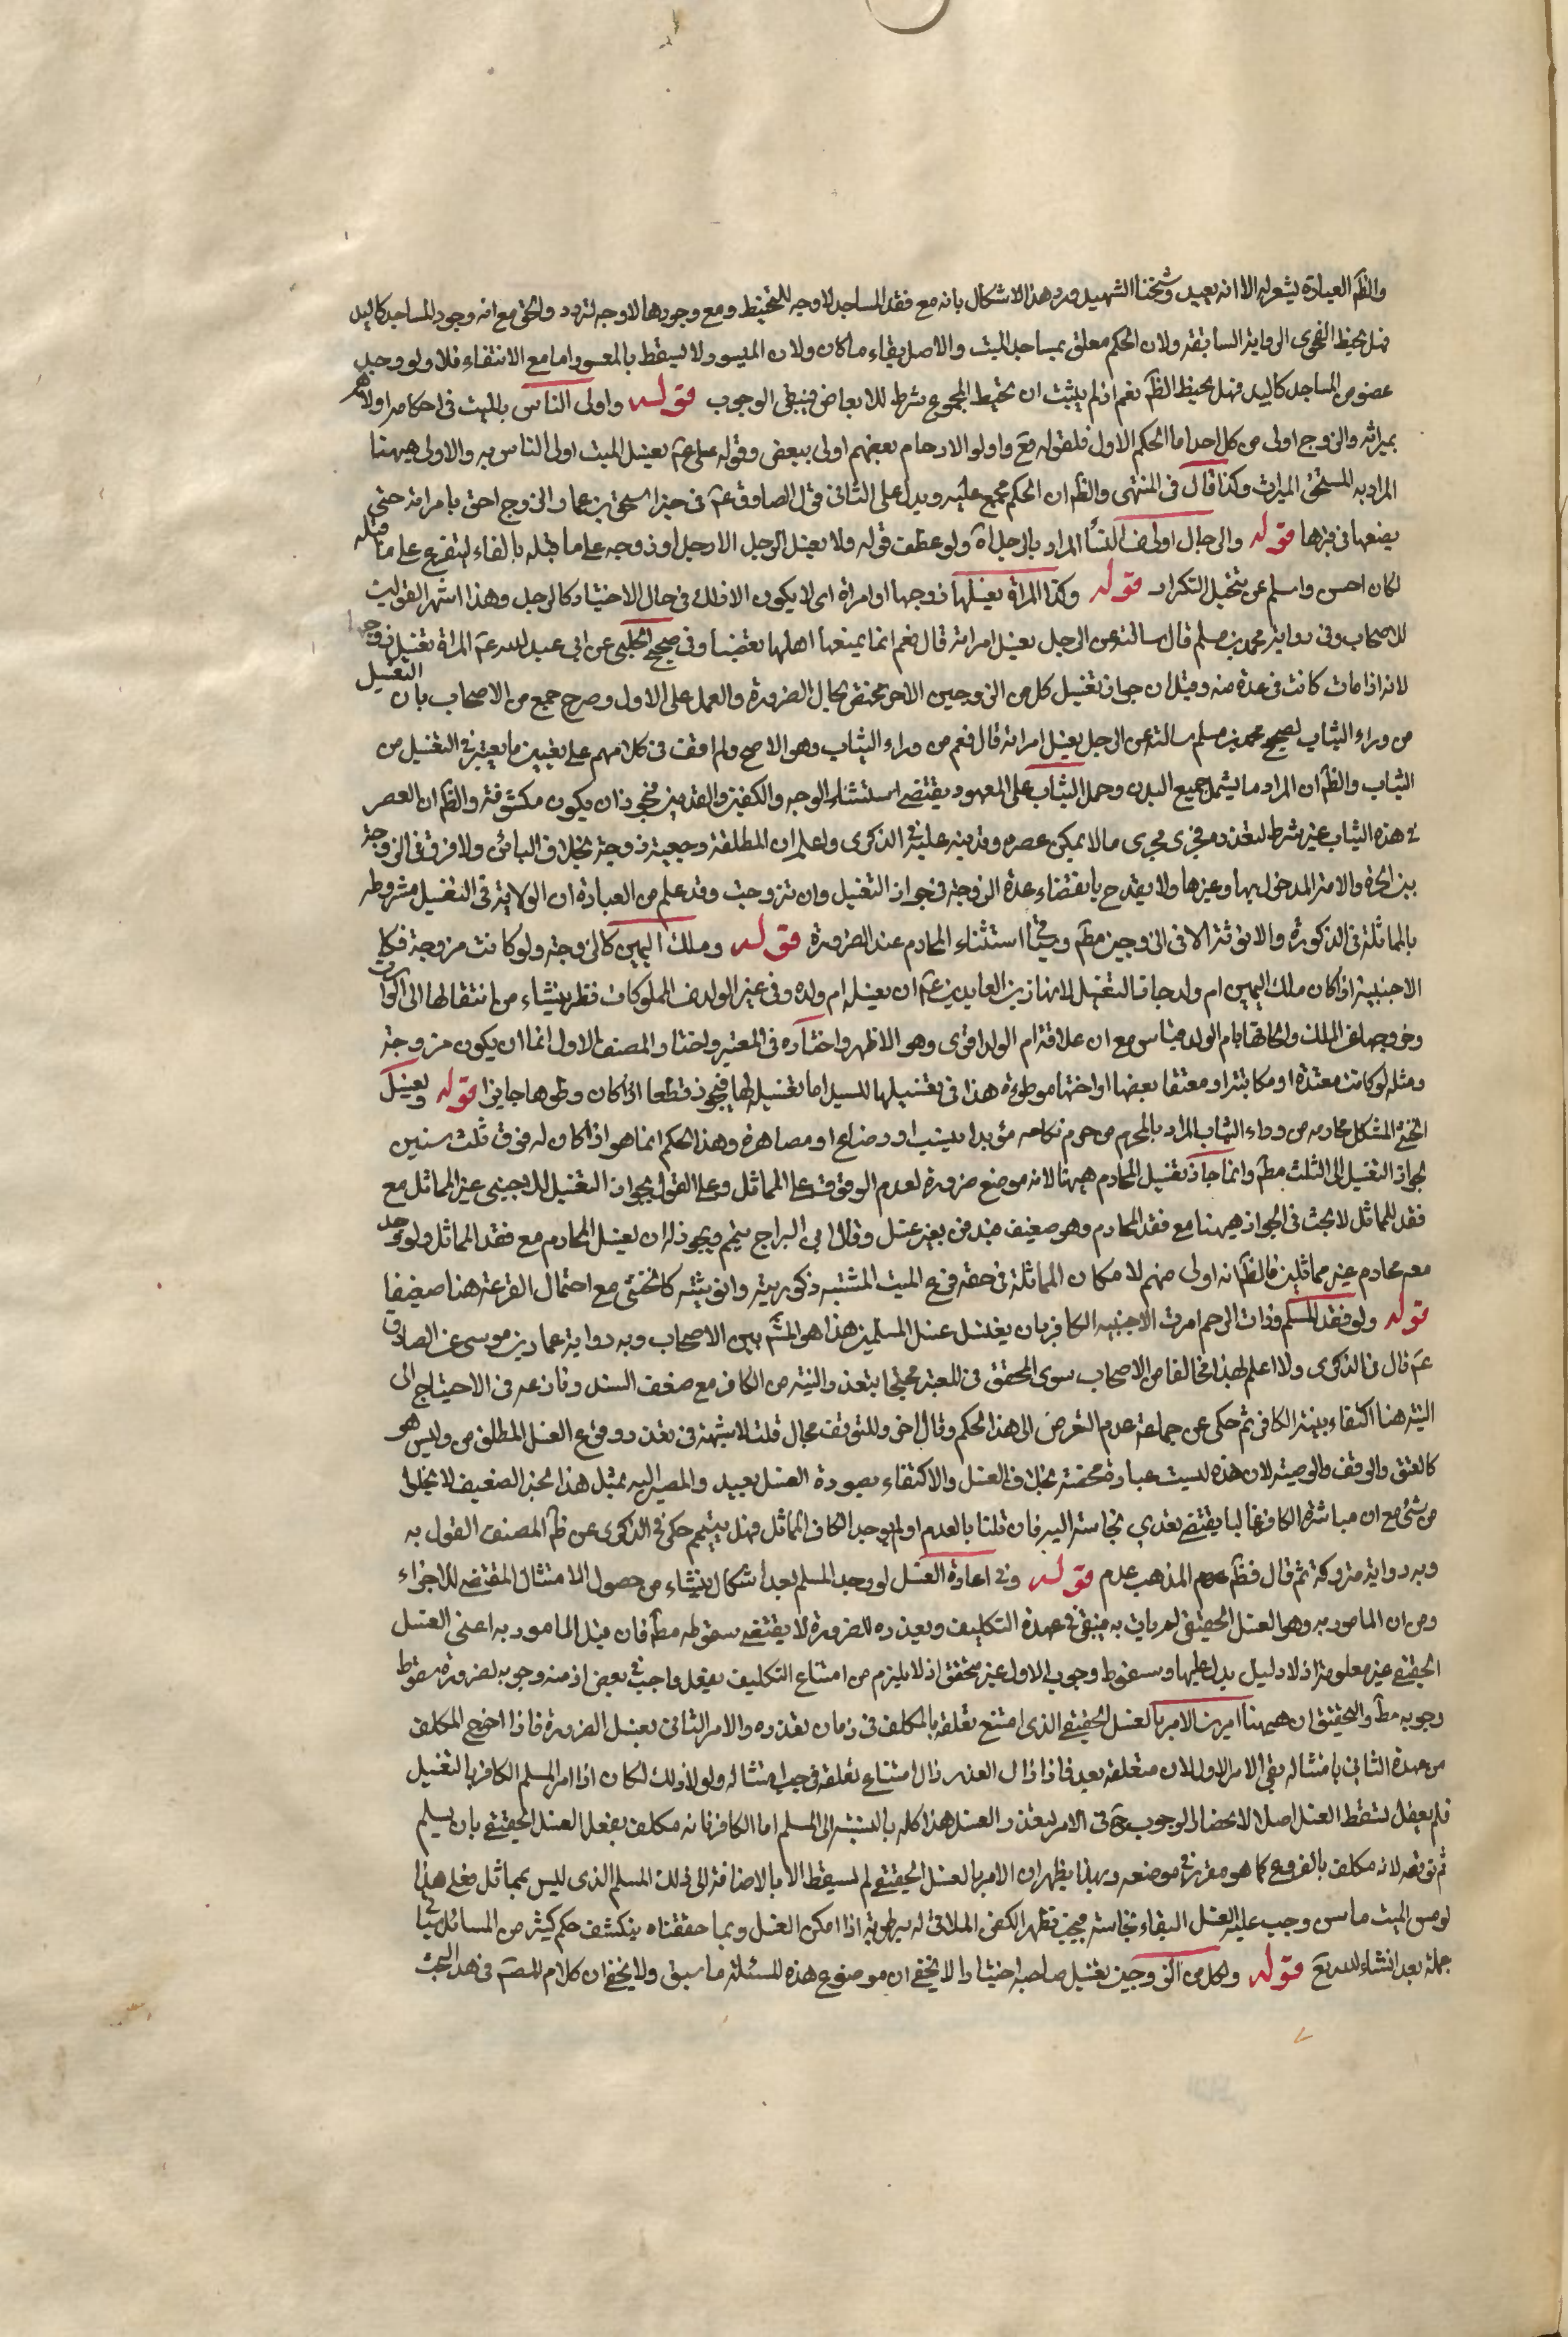 والظ العبارة يشعر به الا انه بعيد وشيخنا الشهيد رد هذا الاشكال بانه مع فقد المساجد لا وجه للتحنيط ومع وجودها لا وجه لتردد والحق مع انه وجود المساجد كاليد
فهل يحنط الفحوى الرواية السابقة ولان الحكم معلق بمساجد الميت والاصل بقاء ما كان ولان الميسور لا يسقط بالمعسور اما مع الانتفاء فلا ولو وجد
عضو من المساجد كاليد فهل يحنط الظ نعم اذ لم يثبت ان تحنيط المجموع شرط للابعاض فينبغى الوجوب قوله واولى الناس بالميت فى احكامه اولاهم
بميراثه والزوج اولى من كل احد اما الحكم الاول فلقوله تع واولو الارحام بعضهم اولى ببعض وقوله على عم يغسل الميت اولى الناس به والاولى هيهنا
المراد به المستحق الميراث وكذا قال فى المنتهى والظ ان الحكم مجمع عليه ويدل على الثانى قول الصادق عم فى خبر اسحق بن عمار الزوج احق بامراته حتى
يضعها فى قبرها قوله والرجال اولى من النساء المراد بالرجل اة ولو عطف قوله ولا يغسل الرجل الا رجل او زوجه على ما قبله بالفاء ليتفرع على ما قبله
لكان احسن واسلم عن تخيل التكرار قوله وكذا المراة يغسلها زوجها او امراة اى لا يكون الا ذلك فى حال الاختيار كالرجل وهذا اشهر القولين
للاصحاب وفى رواية محمد بن مسلم قال سالته عن الرجل يغسل امراته قال نعم انما يمنعها اهلها تعصبا وفى صحيح الحلبى عن ابى عبد الله عم المراة تغسل زوجها
لانه اذا مات كانت فى عدة منه وقيل ان جواز تغسيل كل من الزوجين الاخر مختص بحال الضرورة والعمل على الاول وصرح جمع من الاصحاب بان التغسيل
من وراء الثياب لصحيح محمد بن مسلم سالته عن الرجل يغسل امراته قال نعم من وراء الثياب وهو الاصح ولم اقف فى كلامهم على تعيين ما يعتبر فى التغسيل من
الثياب والظ ان المراد ما يشمل جميع البدن وحمل الثياب على المعهود يقتضى استثناء الوجه والكفين والقدمين فيجوز ان يكون مكشوفة والظ ان العصر
فى هذه الثياب غير شرط لتعذره فجرى مجرى ما لا يمكن عصره وقد نبه عليه فى الذكرى واعلم ان المطلقة رجعية زوجة بخلاف البائن ولا فرق فى الزوجة
بين الحرة والامة المدخول بها وغيرها ولا يقدح بانقضاء عدة الزوجة فى جواز التغسيل وان تزوجت وقد علم من العبارة ان الولاية فى التغسيل مشروطه
بالمماثلة فى الذكورة والانوثة الا فى الزوجين مط وسيجئ استثناء المحارم عند الضرورة قوله وملك اليمين كالزوجة ولو كانت مزوجة فكا
الاجنبية اذا كان ملك اليمين ام ولد جاز التغسيل لان زين العابدين عم ان يغسله ام ولده وفى غير الولد من المملوكات نظر ينشاء من انتقالها الى الوارث
وخروجها عن الملك والحاقها بام الولد قياس مع ان علاقة ام الولد اقوى وهو الاظهر واختاره فى المعتبر واختار المصنف الاول انما ان يكون مزوجة
ومثله لو كانت معتدة او مكاتبة او معتقا بعضها او اختها موطوءة هذا فى تغسيلها للسيد اما تغسيله لها فيجوز قطعا اذا كان وطوها جايزا قوله ويغسل
الخنثى المشكل محارمه من وراء الثياب المراد بالمحرم من حرم نكاحه مؤبدا بنسب او رضاع او مصاهرة وهذا الحكم انما هو اذا كان له فوق ثلث سنين
لجواز التغسيل الى الثلث مط وانما جاز تغسيل المحارم هيهنا لانه موضع ضرورة لعدم الوقوف على المماثل وعلى القول بجواز التغسيل للاجنبى غير المماثل مع
فقد المماثل لا بحث فى الجواز هيهنا مع فقد المحارم وهو ضعيف فيدفن بغير غسل وقال ابن البراج يتيمم ويجوز له ان يغسل المحارم مع فقد المماثل ولو وجد
معه محارم غير مماثلين فالظ انه اولى منهم لامكان المماثلة فى حقه فرع الميت المشتبه ذكوريته وانوثيته كالخنثى مع احتمال القرعة هنا ضعيفا
قوله ولو فقد المسلم وذات الرحم امرت الاجنبيه الكافر بان يغتسل غسل المسلمين هذا هو المش بين الاصحاب وبه رواية عمار بن موسى عن الصادق
عم قال فى الذكرى ولا اعلم لهذا مخالفا من الاصحاب سوى المحقق فى المعتبر محتجا بتعذر النية من الكافر مع ضعف السند وتنازعه فى الاحتياج الى
النية هنا اكتفاء بنية الكافر ثم حكى عن جماعة عدم التعرض الى هذا الحكم وقال اخر وللتوقف مجال قلت لا شبهة فى تعذر وقوع الغسل المطلق من وليس هو
كالعتق والوقف والوصية لان هذه ليست عبادة محضة بخلاف الغسل والاكتفاء بصورة الغسل بعيد والمصير اليه بمثل هذا الخبر الضعيف لا يخلوا
من شئ مع ان مباشرة الكافر غالبا يقتضى تعدى نجاسته اليه فان قلنا بالعدم او لم يوجد الكافر المماثل فهل ييتمم حكى فى الذكرى عن ظ المصنف القول به
وبه رواية متروكة ثم قال فظ المذهب عدم قوله وفى اعادة الغسل لو وجد المسلم بعد اشكال ينشاء من حصول الامتثال المقتضى للاجزاء
ومن ان المامور به وهو الغسل الحقيقى لم يات به فيبقى فى عهدة التكليف وتعذره للضرورة لا يقتضى سقوطه مط فان قيل المامور به اعنى الغسل
الحقيقى غير معلوم اذ لا دليل يدل عليها وسقوط وجوب الاول غير متحقق اذ لا يلزم من امتناع التكليف بفعل واجب فى بعض ازمنه وجوبه لضرورة سقوط
وجوبه مط والتحقيق ان هيهنا امرين الامر بالغسل الحقيقى الذى امتنع تعلقه بالمكلف فى زمان تعذره والامر الثانى بغسل الضرورة فاذا اخرج المكلف
من عهدة الثانى بامتثاله بقى الامر الاول لان متعلقه بعد فاذا زال العذر زال امتناع تعلقه فيجب امتثاله ولولا ذلك لكان اذا امر المسلم الكافر بالتغسيل
فلم يفعل لسقط الغسل اصلا لانحصار الوجوب ح فى الامر لتعذر الغسل هذا كله بالنسبة الى المسلم اما الكافر فانه مكلف بفعل الغسل الحقيقى بان يسلم
ثم يوقعه لانه مكلف بالفروع كما هو مقرر فى موضعه وبهذا يظهر ان الامر بالغسل الحقيقى لم يسقط الا بالاضافة الى ذلك المسلم الذى ليس بمماثل فعلى هذا
لو مس الميت ماس وجب عليه الغسل لبقاء نجاسته فيجب تطهر الكفن الملاقى له برطوبة اذا امكن الغسل وبما حققناه ينكشف حكم كثير من المسائل يجئ
جملة بعد انشاء الله تع قوله ولكل من الزوجين تغسيل صاحبه اختيارا لا يخفى ان موضوع هذه المسئلة ما سبق ولا يخفى ان كلام المص فى هذا البحث